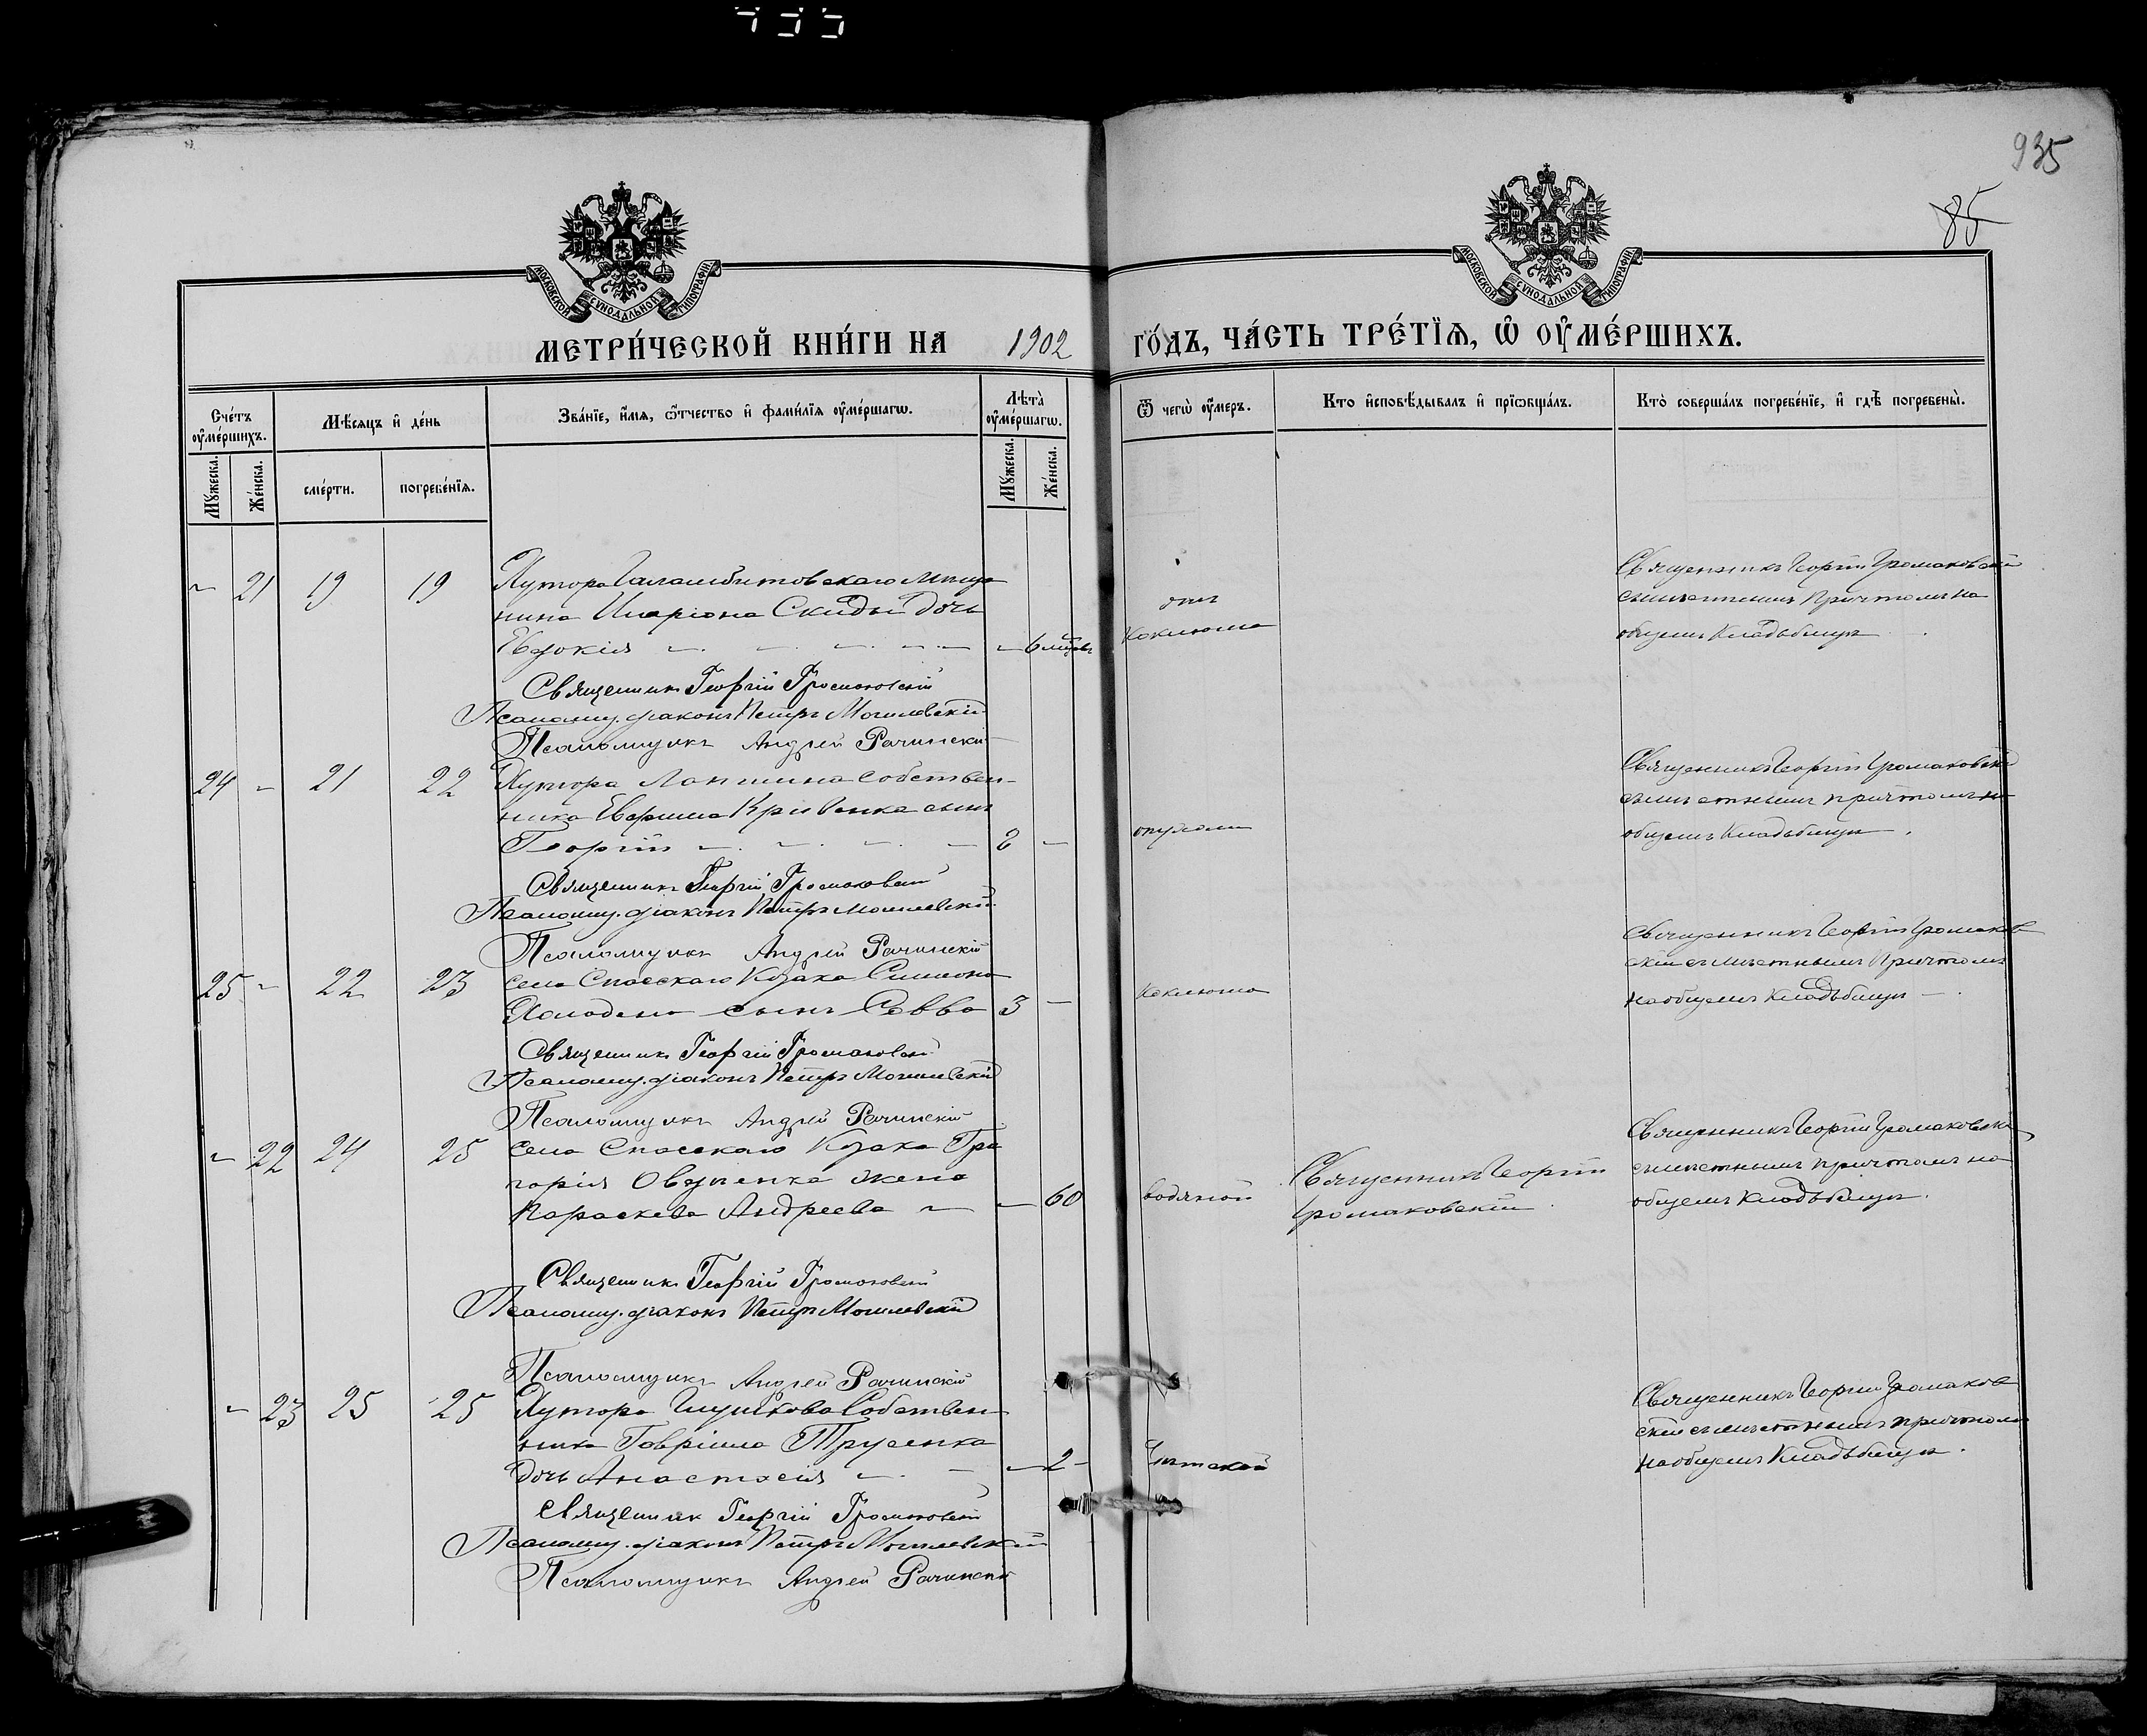 935
935
85
МОСКОВСКОЙ СѴНОДАЛЬНОЙ ТИПОГРАФІИ
МОСКОВСКОЙ СѴНОДАЛЬНОЙ ТИПОГРАФІИ
МЕТРИ́ЧЕСКОЙ КНИ́ГИ НА 1902 ГО́ДЪ, ЧА́СТЬ ТРЕ́ТІѦ, Ѡ҆ ОУ҆МЕ́РШИХЪ.
Сче́тъ оу҆ме́ршихъ.
Мꙋ́жеска.
Же́нска.
Мѣ́сяцъ и҆ де́нь
сме́рти.
погребе́нїѧ.
Зва́нїе, и҆́мѧ, ѻ҆́тчество и҆ фами́лїѧ оу҆ме́ршагѡ.
Лѣ́та̀ оу҆ме́ршагѡ.
Мꙋ́жеска.
Же́нска.
Ѿ чегѡ̀ оу҆́меръ.
Кто и҆сповѣ́дывалъ и҆ прїѡбща́лъ.
Кто̀ соверша́лъ погребе́нїе, и҆ гдѣ̀ погребены̀.
- 21 19 19 Хутора мѣща
нина Иларіона Скиды дочь
Евдокія - 6 мѣсяц.
отъ
коклюша
Священникъ Георгій Громаковскій
съ мѣстнымъ причтомъ на
общемъ кладбищѣ.
Священникъ Георгій Громаковскій
Псаломщ. діаконъ Петръ Могилевскій
Псаломщикъ Андрей Рачинскій
24 - 21 22 Хутора Лапшина собствен-
ника Ефрима Кривенка сынъ
Георгій 2 -
опухоли
Священникъ Георгій Громаковскій
съ мѣстнымъ причтомъ на
общемъ кладбищѣ.
Священникъ Георгій Громаковскій
Псаломщ. діаконъ Петръ Могилевскій
Псаломщикъ Андрей Рачинскій
25 - 22 23 села Спасскаго Козака Симеона
Холодена сынъ Савва 3 -
коклюша
Священникъ Георгій Громаков
скій съ мѣстнымъ причтомъ
на общемъ кладбищѣ.
Священникъ Георгій Громаковскій
Псаломщ. діаконъ Петръ Могилевскій
Псаломщикъ Андрей Рачинскій
- 22 24 25 села Спасскаго Козака Гри
горія жена
Параскева Андреева - 60
водяной
Священникъ Георгій
Громаковскій
Священникъ Георгій Громаковскій
съ мѣстнымъ причтомъ на
общемъ кладбищѣ.
Священникъ Георгій Громаковскій
Псаломщ. діаконъ Петръ Могилевскій
Псаломщикъ Андрей Рачинскій
- 23 25 25 Хутора Глушкова Собствен
ника Гавріила
дочь Анастасія - 2 -
Священникъ Георгій Громаков
скій съ мѣстнымъ причтомъ
на общемъ кладбищѣ.
Священникъ Георгій Громаковскій
Псаломщ. діаконъ Петръ Могилевскій
Псаломщикъ Андрей Рачинскій